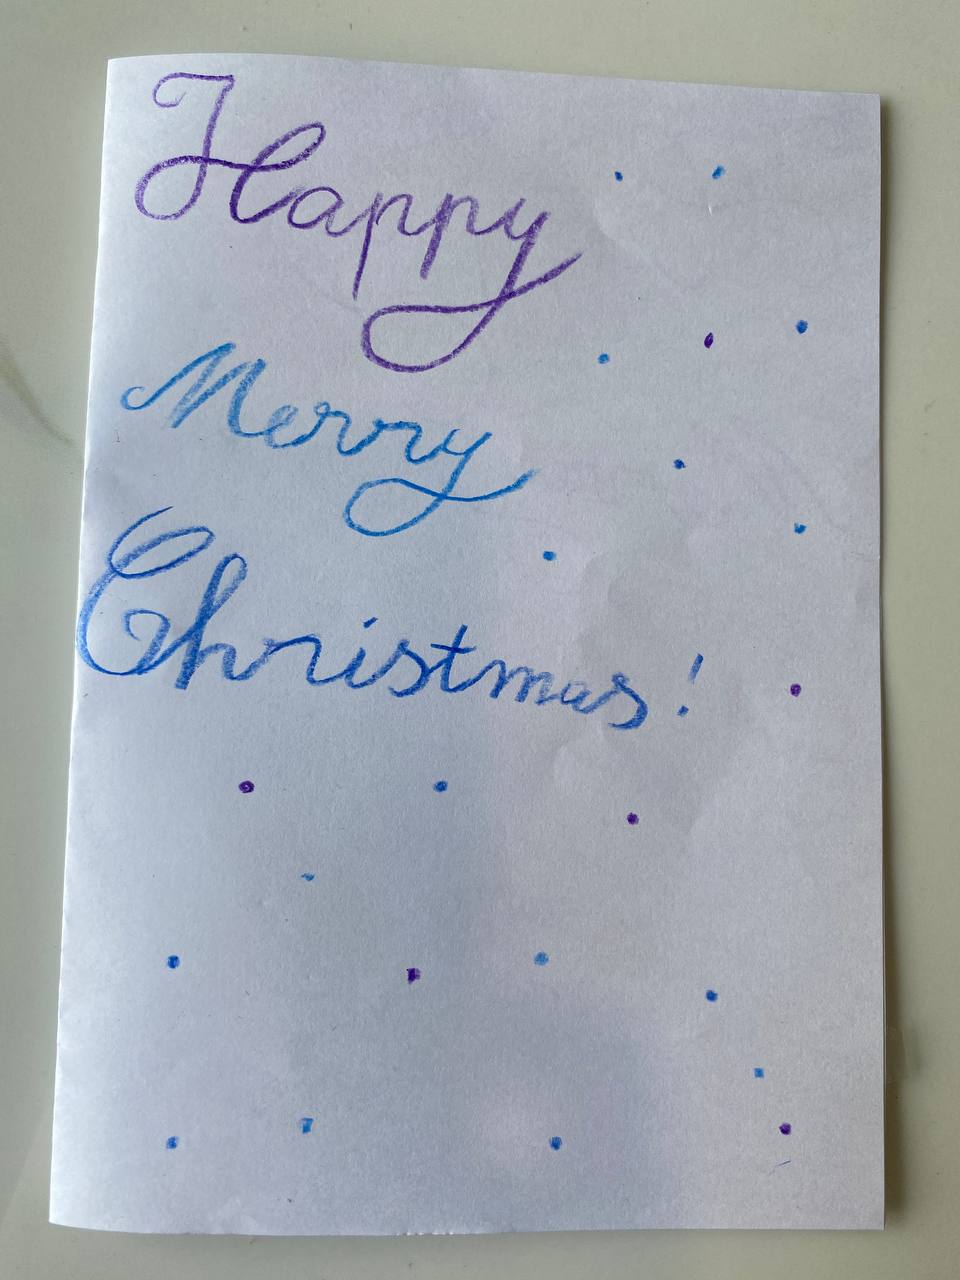 Happy
Merry
Christmas!